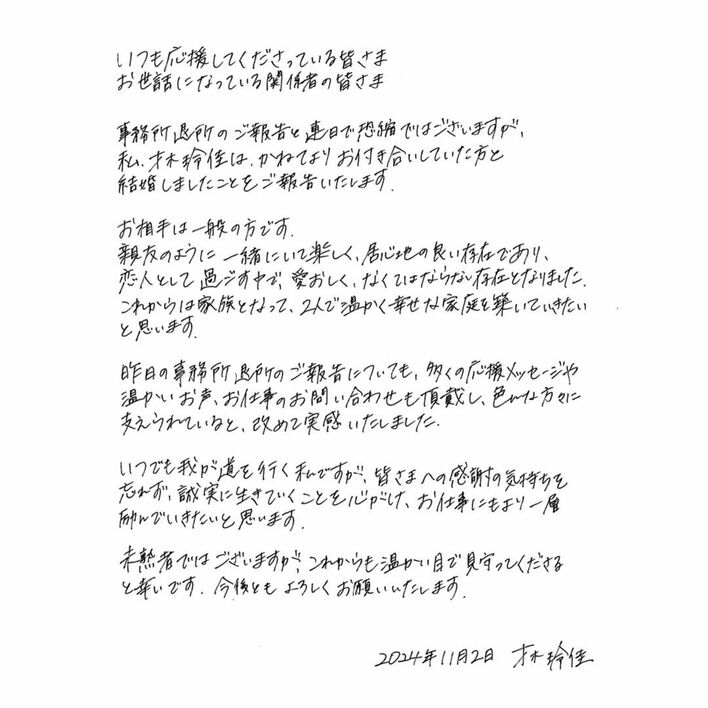 いつも応援してくださっている皆さま
お世話になっている関係者の皆さま
事務所退所のご報告と連日で恐縮ではございますが、
私、才木玲佳は、かねてよりお付き合いしていた方と
結婚しましたことをご報告いたします.
お相手は一般の方です.
親友のように一緒にいて楽しく、居心地の良い存在であり、
恋人として過ごす中で、愛おしく、なくてはならない存在となりました.
これからは家族となって、2人で温かく幸せな家庭を築いていきたい
と思います.
昨日の事務所退所のご報告についても、多くの応援メッセージや
温かいお声、お仕事のお問い合わせも頂戴し、色んな方々に
支えられていると、改めて実感いたしました.
いつでも我が道を行く私ですが、皆さまへの感謝の気持ちを
忘れず、誠実に生きていくことを心がけ、お仕事にもより一層
励んでいきたいと思います.
未熟者ではございますが、これからも温かい目で見守ってくださる
と幸いです. 今後ともよろしくお願いいたします.
2024年11月2日 才木玲佳